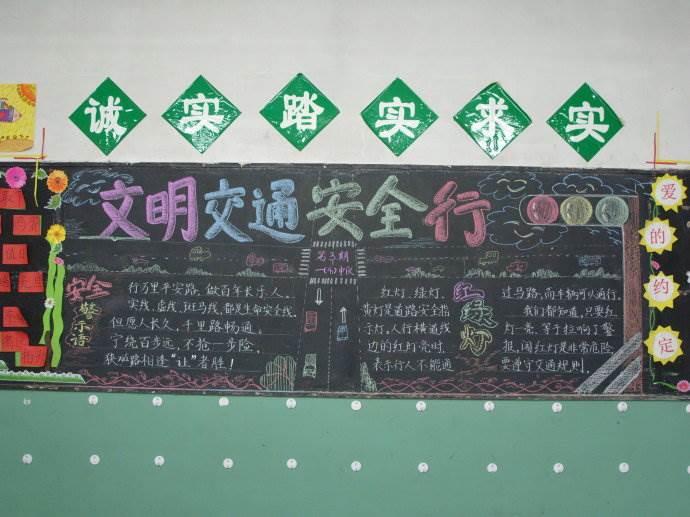 诚实踏实求实
文明交通安全行
第3期
安全警示语
行万里平安路,做百年长乐人。
实线、虚线、斑马线,都是生命安全线。
但愿人长久,千里路畅通。
宁绕百步远,不抢一步险。
狭路相逢“让”者胜!
红绿灯
红灯、绿灯、
黄灯是道路安全指
示灯。人行横道线
边的红灯亮时,
表示行人不能通
过马路,而车辆可以通行。
我们都知道,只要红
灯一亮,等于拉响了警
报,闯红灯是非常危险
要遵守交通规则。
爱的约定